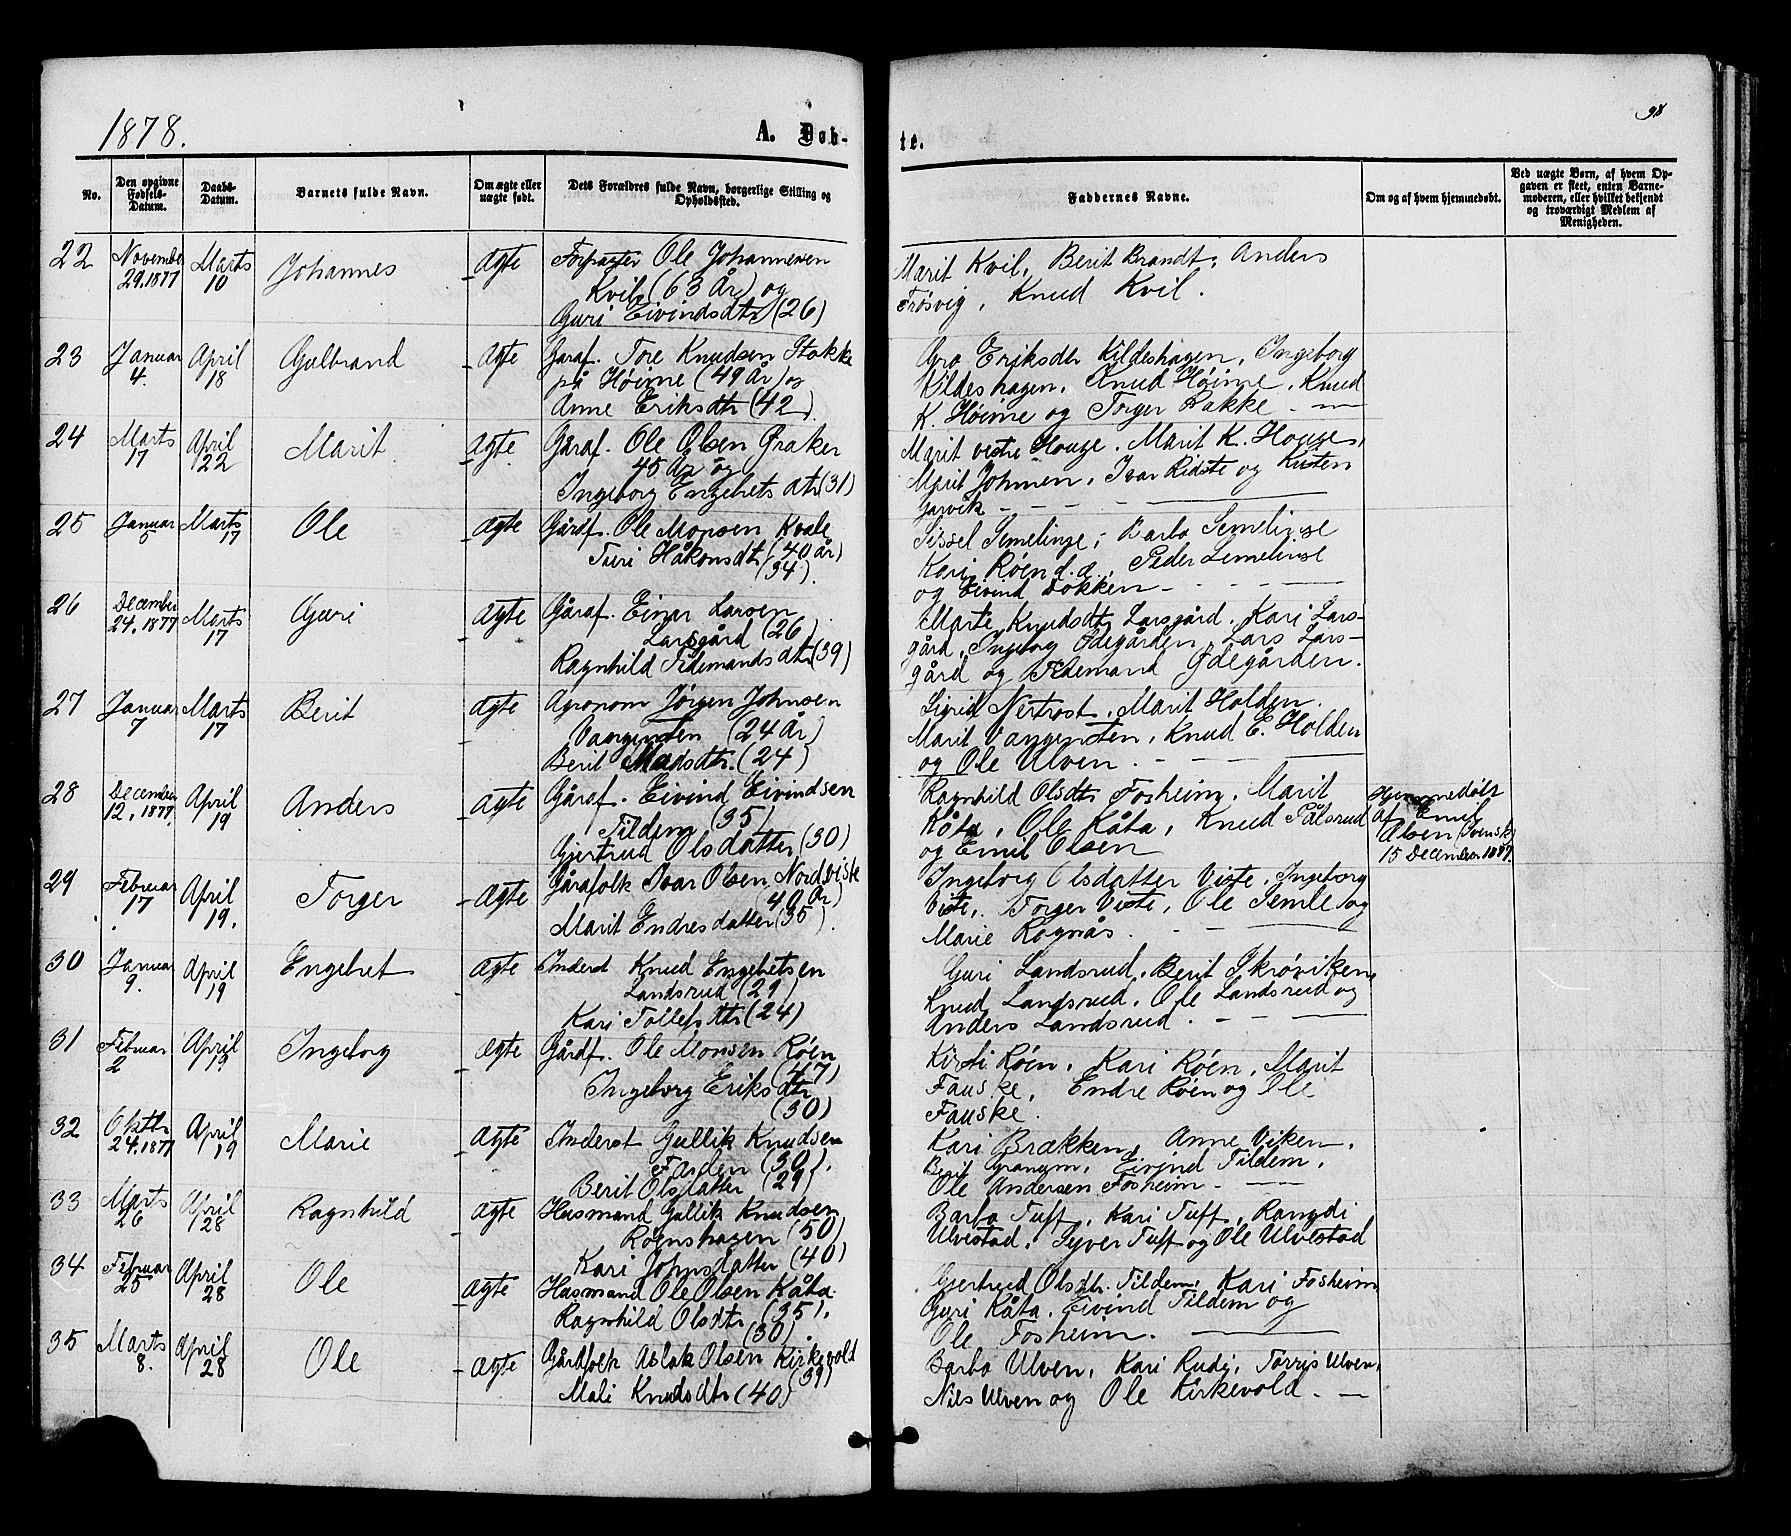 98
1878.
A. Døb-
te.
No.
Den opgivne Fødsels-Datum.
Daabs-Datum.
Barnets fulde Navn.
Om ægte eller uægte født.
Dets Forældres fulde Navn, borgerlige Stilling og Opholdssted.
Faddernes Navne.
Om og af hvem hjemmedøbt.
Ved uægte Børn, af hvem Opgaven er skeet, enten Barnemoderen, eller hvilket bekjendt og troværdigt Medlem af Menigheden.
22 November 29.1877 Marts 10 Johannes Ægte Forpagter Ole Johannesen
Kvil (63 År) og
Guri Eivindsdtr (26)
Marit Kvil, Berit Brandt, Anders
Frøsvig, Knud Kvil.
23 Januar 4. April 18 Gulbrand Ægte Garaf. Tore Knudsen Stokke
på Høime (49 År) og
Anne Eriksdtr (42)
Gro Eriksdtr Kildeshagen, Ingeborg
Kildeshagen, Knud Høime, Knud
K. Høime og Torger Bakke
24 Marts 17 April 22 Marit Ægte Gåraf. Ole Olsen Graker
45 År og
Ingeborg Engebets dtr (31)
Marit vestre Houge, Marit K. Houge,
Marit Johnsen, Ivar Ridste og Kristen
Garvik
25 Januar 5 Marts 17 Ole Ægte Gårdf. Ole Monsen Kvale
Turi Håkonsdt (40 år)
(34)
Sissel Semelinge, Barbo Semelinge
Kari Røen d.a., Peder Semelinge
og Eivind Dokken
26 December 24.1877 Marts 17 Guri Ægte Gåraf. Einar Larsen
Larsgård (26)
Ragnhild Tidemands dtr (39)
Marte Knudsdt Larsgård, Kari Lars-
gård, Ingeborg Ødegården, Lars Lars-
gård og Tidemand Ødegården.
27 Januar 7 Marts 17 Berit Ægte Agronom Jørgen Johnsen
Vangensten (24 År)
Berit Madsdtr. (24)
Sigrid Nertrost, Marit Holden,
Marit Vangensten, Knud E. Holden
og Ole Ulven.
28 December 12.1877 April 19 Anders Ægte Gåraf. Eivind Eivindsen
Tildem (35)
Gjertrud Olsdatter (30)
Ragnhild Olsdtr Fosheim, Marit
Kåta, Ole Kåta, Knud Pålsrud
og Emil Olsen
Hjemmedøbt
af Emil
Olsen Svensk
15 December 1877.
29 Februar 17 April 19. Torger Ægte Gårafolk Ivar Olsen Nordviste
(40 År)
Marit Endresdatter (35)
Ingeborg Olsdatter Viste, Ingeborg
Viste, Torger Viste, Ole Semle og
Marie Rognås.
30 Januar 9. April 19 Engebret Ægte Inderst Knud Engebetsen
Landsrud (29)
Kari Tollefsdtr (24)
Guri Landsrud, Berit Skrøviken,
Knud Landsrud, Ole Landsrud og
Anders Landsrud.
31 Februar 2 April 19 Ingeborg Ægte Gårdf. Ole Monsen Røen
(47)
Ingeborg Eriksdtr
(30)
Kirsti Røen, Kari Røen, Marit
Fauske, Endre Røen og Ole
Fauske.
32 Oktbr 24.1877 April 19 Marie Ægte Inderst Gullik Knudsen
Farden (30)
Berit Olsdatter (29)
Kari Brækken, Anne Viken,
Berit Granum, Eivind Tildem,
Ole Andersen Fosheim
33 Marts 26 April 28 Ragnhild Ægte Husmand Gullik Knudsen
Roenshagen (50)
Kari Johnsdatter (40)
Barbo Tuff, Kari Tuff, Rangdi
Ulvestad, Syver Tuff og Ole Ulvestad
34 Februar 25 April 28 Ole Ægte Husmand Ole Olsen Kåta
Ragnhild Olsdtr (35),
(30)
Gjertrud Olsdtr. Tildem, Kari Fosheim
Guri Kåta, Eivind Tildem og
Ole Fosheim.
35 Marts 8. April 28 Ole Ægte Gårdfolk Aslak Olsen Kirkevold
(39)
Mali Knudsdtr (40)
Barbo Ulven, Kari Rudi, Torris Ulven,
Nils Ulven og Ole Kirkevold.